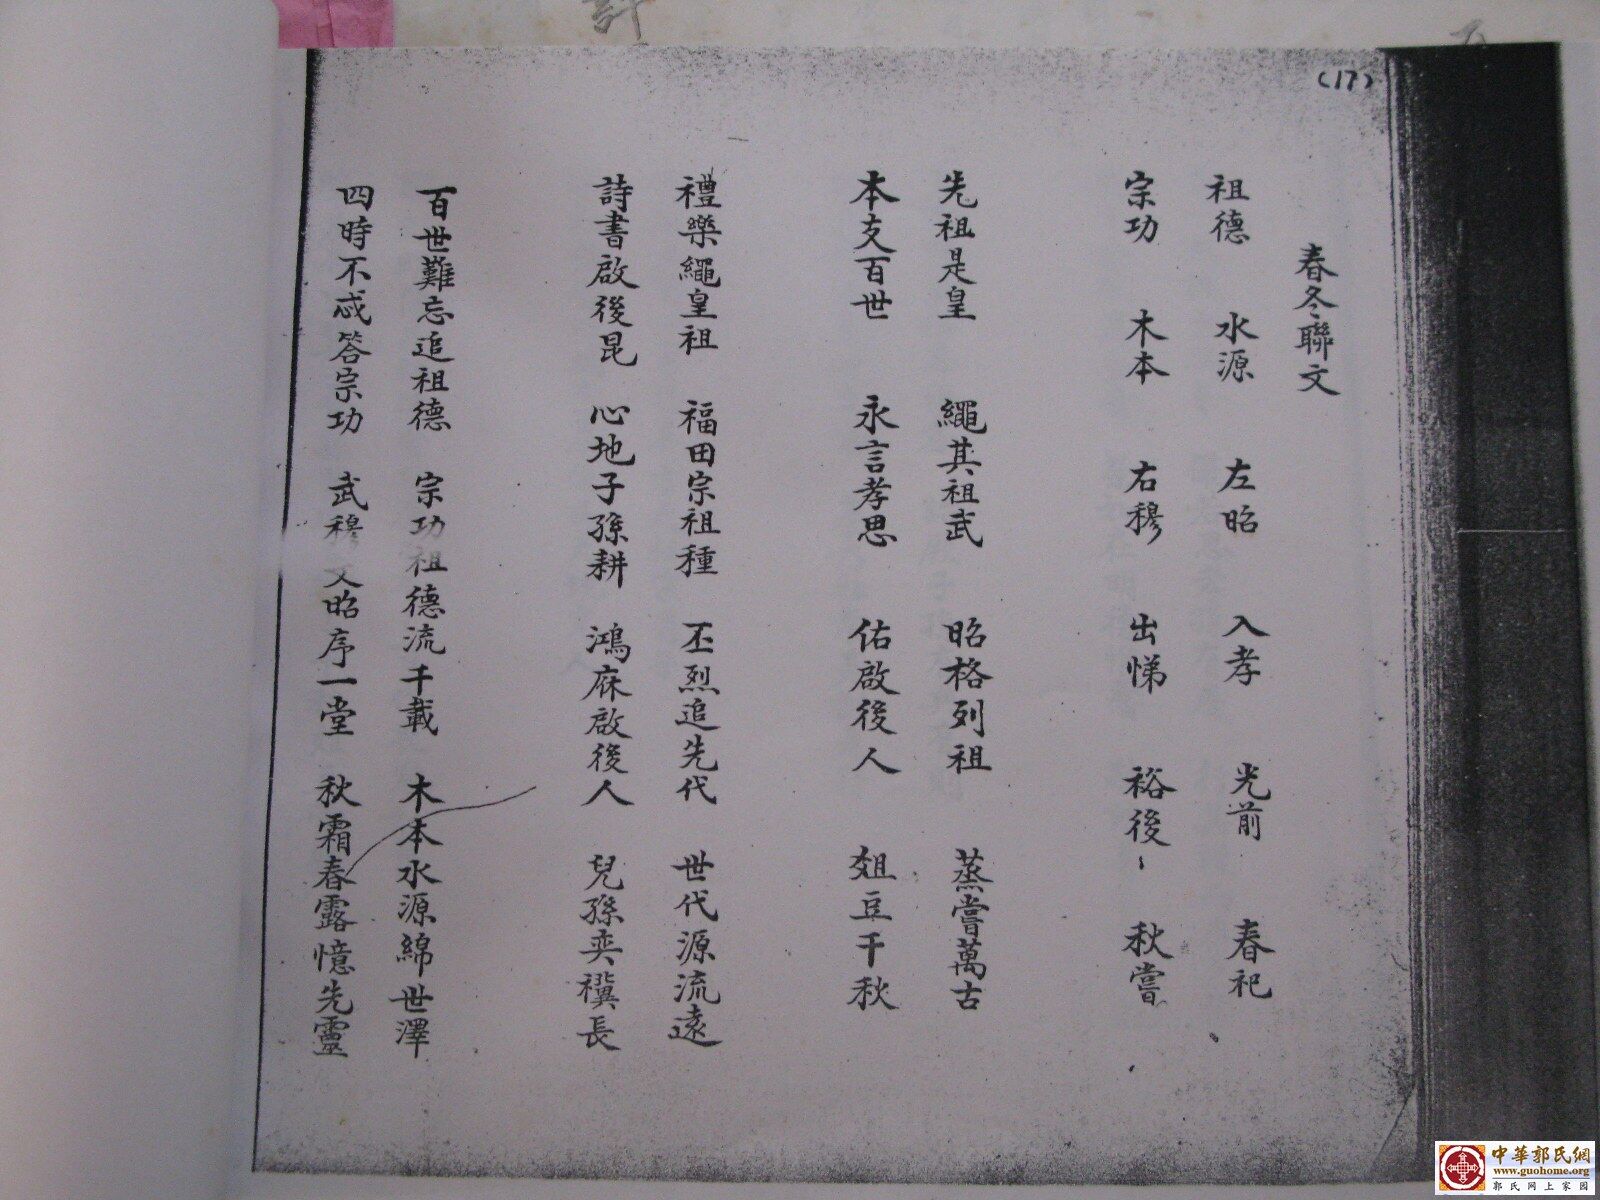 (17)
春冬聯文
祖德 水源 左昭 入孝 光前 春祀
宗功 木本 右穆 出悌 裕後 秋嘗
先祖是皇 繩其祖武 昭格列祖 蒸嘗萬古
本支百世 永言孝思 佑啟後人 俎豆千秋
禮樂繩皇祖 福田宗祖種 丕烈追先代 世代源流遠
詩書啟後昆 心地子孫耕 鴻庥啟後人 兒孫奕襈長
百世難忘追祖德 宗功祖德流千載 木本水源綿世澤
四時不忒答宗功 武穆文昭序一堂 秋霜春露憶先靈
中華郭氏網
www.guohome.org
郭氏网上家园